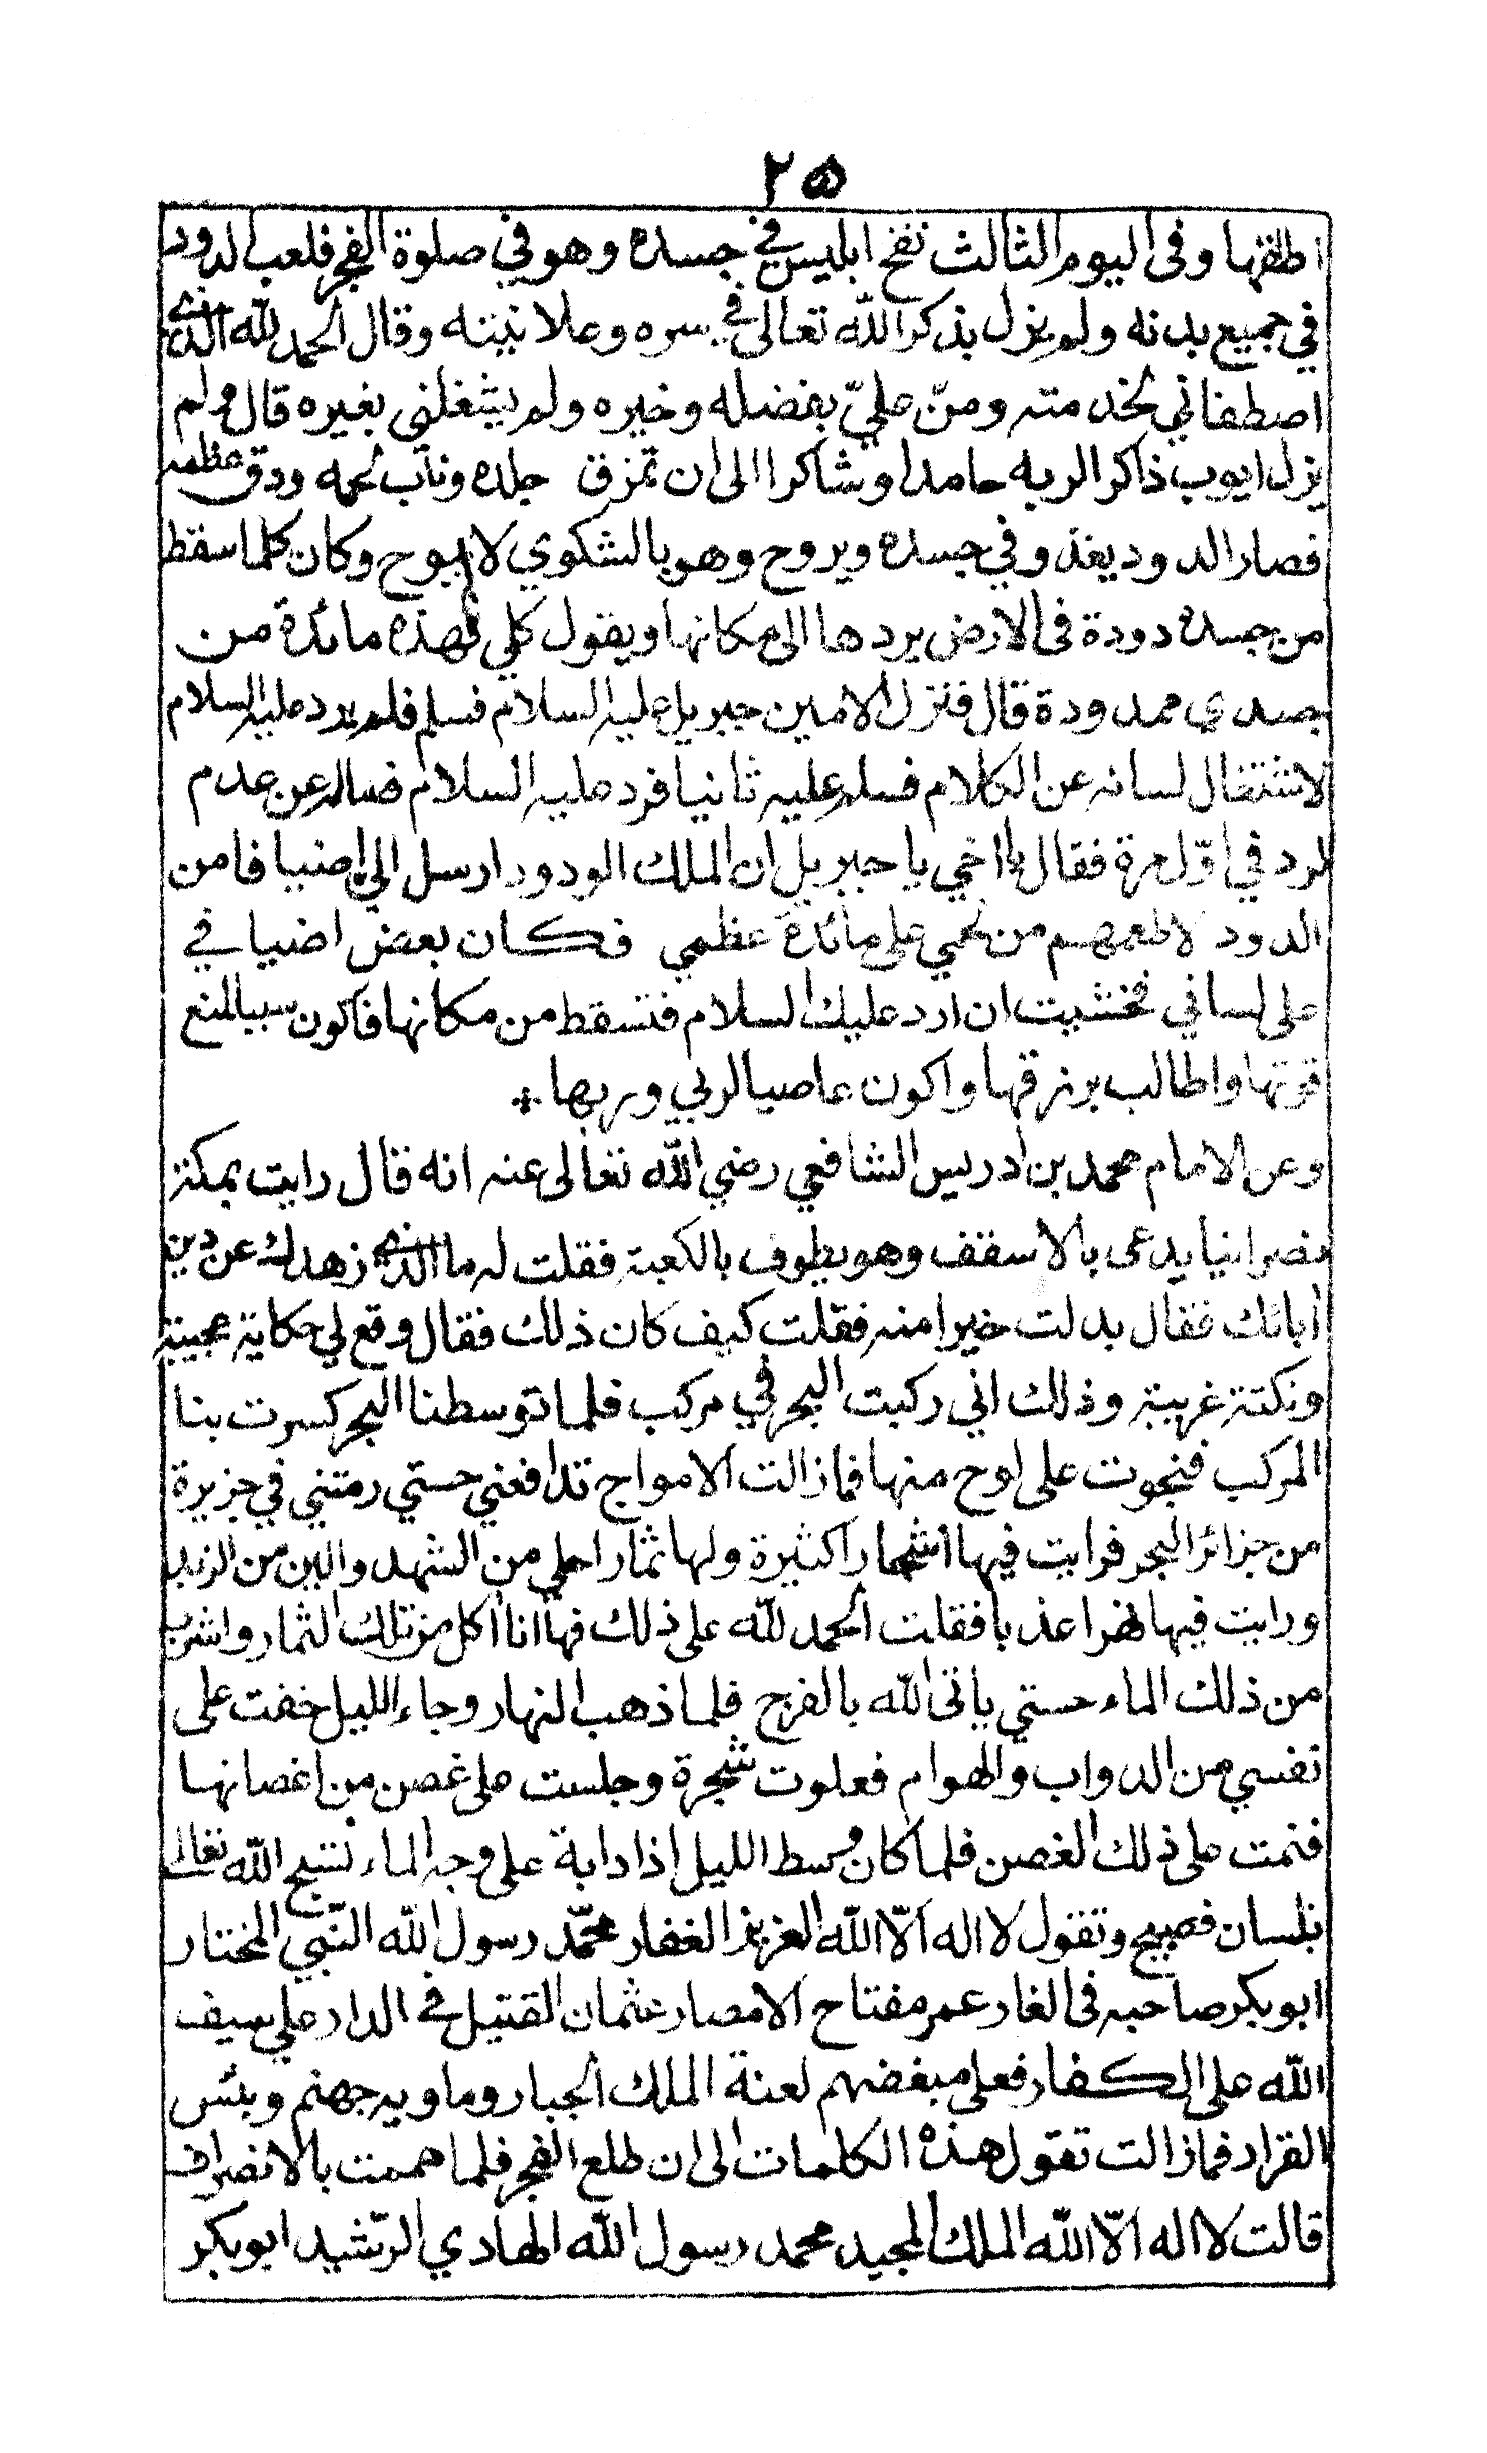 ٢٥
اطلقها وفى اليوم الثالث نفخ ابليس في جسده وهو في صلوة الفجر فلعب الدود
في جميع بدنه ولم يزل يذكر الله تعالى في سره وعلا نيته وقال الحمد لله الذي
اصطفاني لخدمته ومنّ عليّ بفضله وخيره ولم يشغلني بغيره قال ولم
يزل ايوب ذاكرا لربه حامدا وشاكرا الى ان تمزق جلده وذاب لحمه ودق عظمه
فصار الدود يغذ وفي جسده ويروح وهو بالشكوي لا يبوح وكان كلما سقط
من جسده دودة فى الارض يردها الى مكانها ويقول كلي فهذه مائدة من
جسدي ممدودة قال فنزل الامين جبريل عليه السلام فسلم فلم يرد عليه السلام
لاشتغال لسانه عن الكلام فسلم عليه ثانيا فرد عليه السلام فساله عن عدم
لرد في اوّل مرة فقال يا اخي يا جبريل ان الملك الودود ارسل الي اضيافا من
الدود لاطعمهم من لحمي على مائدة عظمي فكان بعض اضيافي
على لساني فخشيت ان ارد عليك السلام فتسقط من مكانها فاكون سببا لمنع
قوتها واطالب برزقها واكون عاصيا لربي وربها *
وعن الامام محمد بن ادريس الشافعي رضي الله تعالى عنه انه قال رايت بمكة
نصرانيا يدعى بالاسقف وهو يطوف بالكعبة فقلت له ما الذي زهدك عن دين
ابائك فقال بدلت خيرا منه فقلت كيف كان ذلك فقال وقع لي حكاية عجيبة
ونكتة غريبة وذلك اني ركبت البحر في مركب فلما توسطنا البحر كسرت بنا
المركب فنجوت على لوح منها فما زالت الامواج تدافعني حستي رمتني في جزيرة
من جزائر البحر فرايت فيها اشجارا كثيرة ولها ثمار احلي من الشهد والين من الزبد
ورايت فيها نهرا عذبا فقلت الحمد لله على ذلك فها انا اكل من تلك الثمار واشرب
من ذلك الماء حستي ياتى الله بالفرج فلما ذهب النهار وجاء الليل خفت على
نفسي من الدواب والهوام فعلوت شجرة وجلست على غصن من اغصانها
فنمت على ذلك الغصن فلما كان وسط الليل اذا دابة على وجه الماء تسبح الله تعالى
بلسان فصيح وتقول لا اله الّا الله العزيز الغفار محمّد رسول الله النّبي المختار
ابوبكر صاحبه فى الغار عمر مفتاح الامصار عثمان القتيل في الدار علي سيف
الله على الكفار فعلى مبغضهم لعنة الملك الجبار وماويه جهنم وبئس
القرار فما زالت تقول هذه الكلمات الى ان طلع الفجر فلما هممت بالانصراف
قالت لا اله الّا الله الملك المجيد محمد رسول الله الهادي الرّشيد ابوبكر